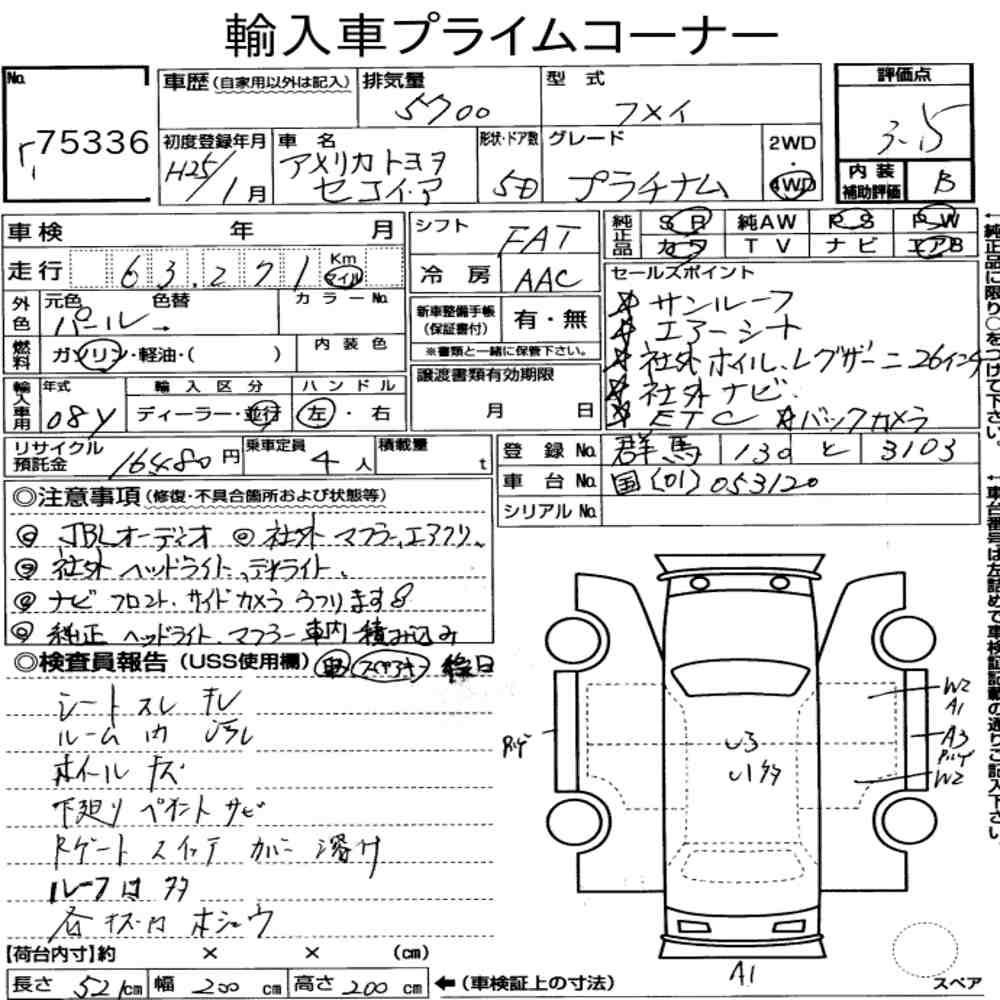 輸入車プライムコーナー
No.
75336
車歴(自家用以外は記入)
排気量
5700
型式
フメイ
初度登録年月
H25/1月
車名
アメリカトヨタ
セコイア
形状・ドア数
5D
グレード
プラチナム
2WD
・
4WD
評価点
3.5
内装
補助評価
B
車検 年 月
走行 63.271 Km マイル
外色
元色 パール→
色替
カラーNo.
燃料
ガソリン・軽油・( )
内装色
輸入車用
年式
08y
輸入区分
ディーラー・並行
ハンドル
左・右
シフト
FAT
冷房
AAC
新車整備手帳
(保証書付)
有・無
※書類と一緒に保管下さい。
譲渡書類有効期限
月 日
純正品
SR 純AW PS PW
カワ TV ナビ エアB
セールスポイント
サンルーフ
エアーシート
社外ホイル、レグザーニ26インチ
社外ナビ
ETC バックカメラ
←純正品に限り○をつけて下さい。
リサイクル
預託金
16480円
乗車定員
4人
積載量
t
登録No. 群馬 130 と 3103
車台No. 国(01)053120
シリアルNo.
←車台番号は左詰めで車検証記載の通りご記入下さい。
◎注意事項(修復・不具合箇所および状態等)
◎ JBLオーディオ ◎ 社外マフラー、エアクリ、
◎ 社外ヘッドライト、デイライト、
◎ ナビ フロント、サイドカメラ うつります
◎ 純正ヘッドライト、マフラー車内積み込み
◎検査員報告(USS使用欄)
シートスレ キレ
ルーム内 汚レ
ホイール キズ
下廻り ペイント サビ
Rゲート スイッチ カバー 溶け
ルーフ凹 多
各キズ凹 ホシュウ
W2
A1
A3
W2
U3
U1多
A1
【荷台内寸】約 × × (cm)
長さ 521cm 幅 200cm 高さ 200cm ←(車検証上の寸法)
スペア